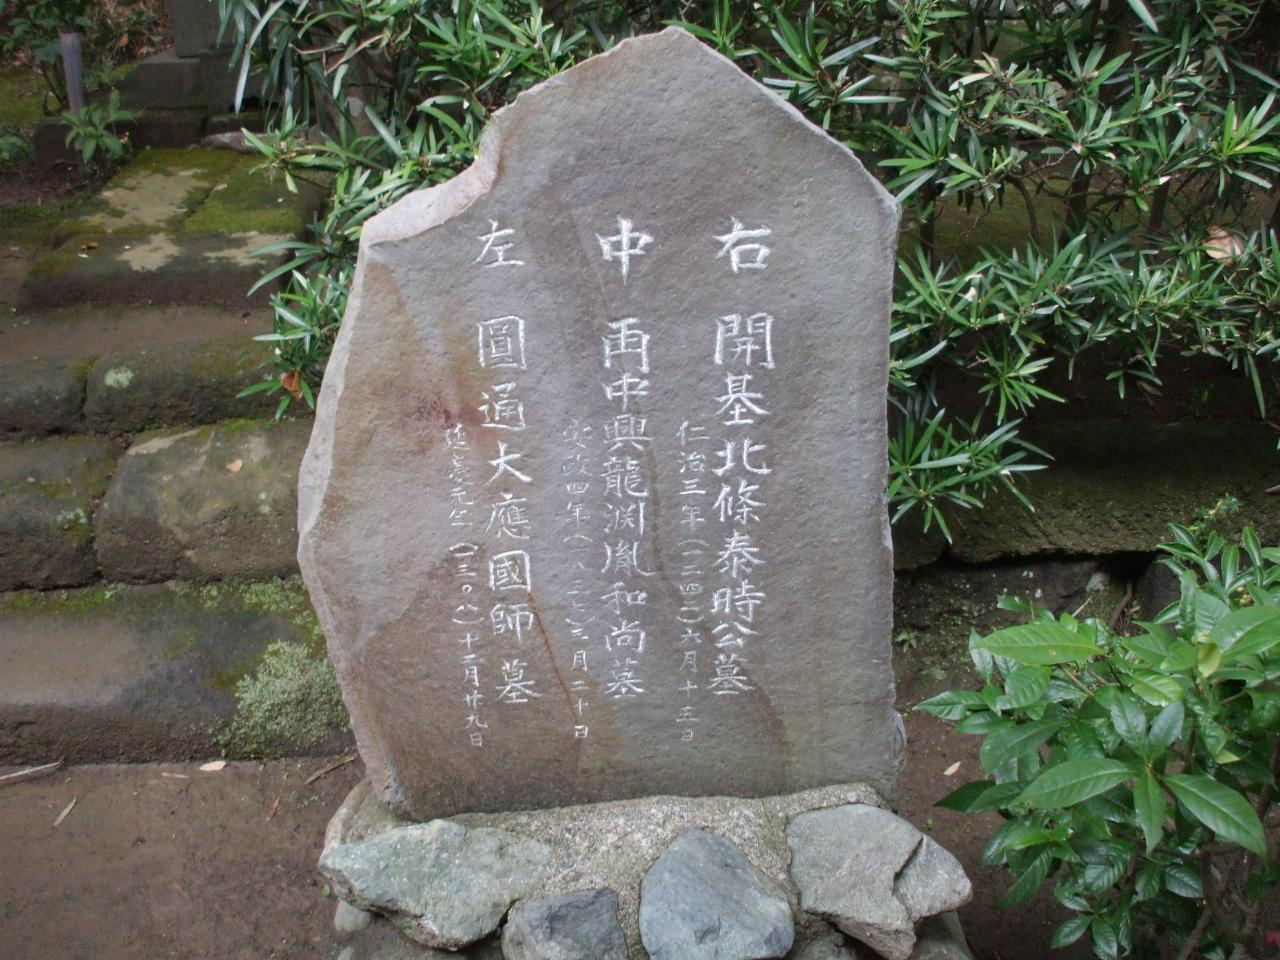 右 開基北條泰時公墓
仁治三年(一二四二)六月十五日
中 再中興龍渊胤和尚墓
安政四年(一八五七)三月二十日
左 圓通大應國師墓
延慶元年(一三〇八)十二月廿九日